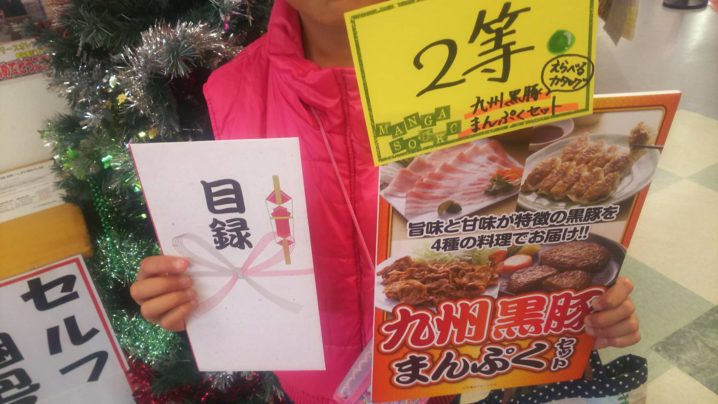 2等
えらべる
カタログ
九州黒豚
まんぷくセット
MANGA
SOKO
目録
旨味と甘味が特徴の黒豚を
4種の料理でお届け!!
九州黒豚
まんぷくセット
セルフ